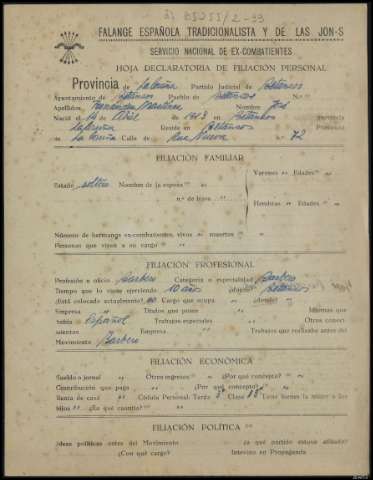 FALANGE ESPAÑOLA TRADICIONALISTA Y DE LAS JON-S
SERVICIO NACIONAL DE EX-COMBATIENTES
HOJA DECLARATORIA DE FILIACIÓN PERSONAL
Provincia de La Coruña Partido Judicial de Betanzos
Ayuntamiento de Betanzos Pueblo de Betanzos N.º
Apellidos Fernández Martínez Nombre José
Nació el 14 de Abril de 1913 en Betanzos provincia
La Coruña Reside en Betanzos Provincia
de La Coruña Calle de Rua Nueva n.º 72
FILIACIÓN FAMILIAR
Varones " Edades "
Estado soltero Nombre de la esposa "
n.º de hijos
Hembras " Edades "
Número de hermanos ex-combatientes, vivos " muertos "
Personas que viven a su cargo "
FILIACIÓN PROFESIONAL
Profesión u oficio Barbero Categoría o especialidad Barbero
Tiempo que lo viene ejerciendo 10 años ¿dónde? Betanzos
¿Está colocado actualmente? no Cargo que ocupa " ¿dónde? "
Empresa " Títulos que posee " Idiomas que
habla Español Trabajos especiales " Otros conoci-
mientos Empresa " Trabajos que realizaba antes del
Movimiento Barbero
FILIACIÓN ECONÓMICA
Sueldo o jornal " Otros ingresos " ¿Por qué concepto? "
Contribución que paga " ¿Por qué concepto? "
Renta de casa " Cédula Personal. Tarifa 3ª Clase Tiene bienes la mujer o los
hijos " ¿En qué cuantía? "
FILIACIÓN POLÍTICA
Ideas políticas antes del Movimiento ¿a qué partido estuvo afiliado?
¿Con qué cargo? Intervino en Propaganda